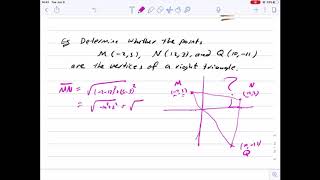 Ex Determine whether the points
M(-2,5), N(12,3), and Q(10,-11)
are the vertices of a right triangle.
M
N
?
(12,3)
MN = √(-2-12)²+(5-3)²
= √-14²+2² = √
(10,-11)
Q